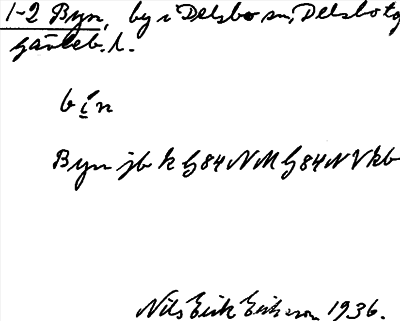 1-2 Byn, by i Delsbo sn, Delsbo tg
Gävleb. l.
bí̱n
Byn jb k G84NM G84NV kb
Nils Erik Eriksson 1936.